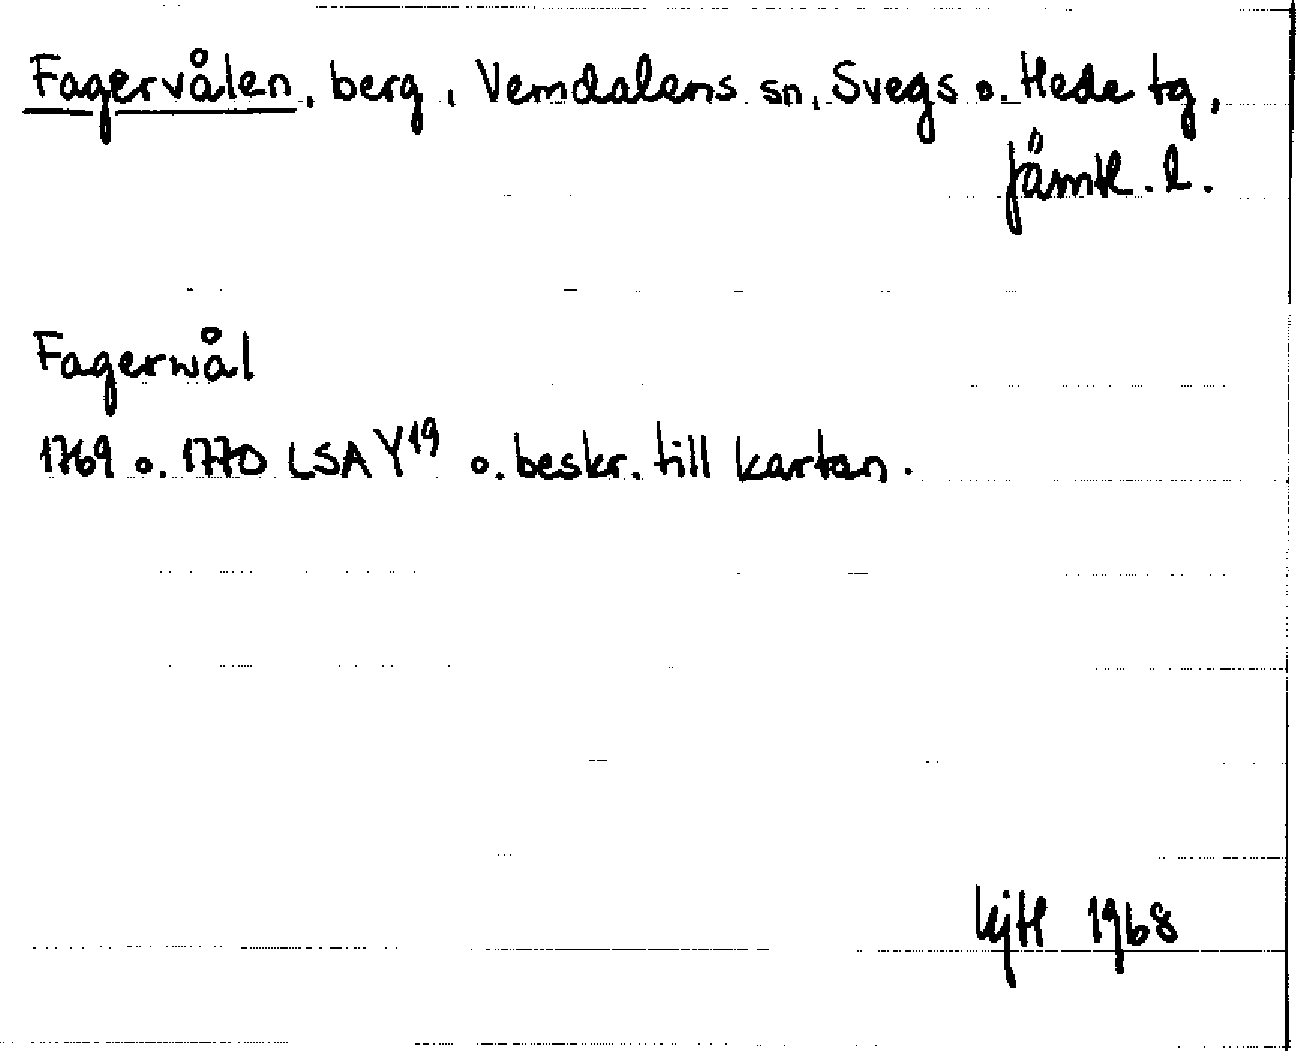 Fagervålen, berg, Vemdalens sn, Svegs o. Hede tg,
Jämtl. l.
Fagerwål
1769 o. 1770 LSA Y19 o. beskr. till kartan.
1968